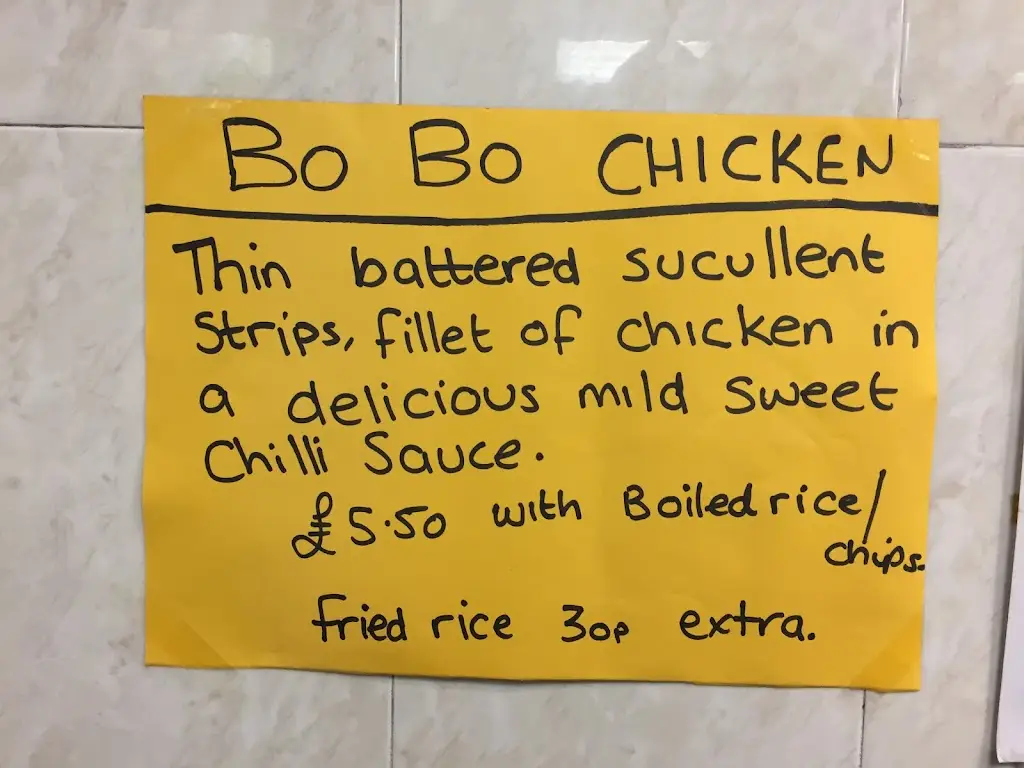 Bo Bo CHICKEN
Thin battered sucullent
Strips, fillet of chicken in
a delicious mild sweet
Chilli Sauce.
£5.50 with Boiled rice/
chips.
fried rice 30p extra.